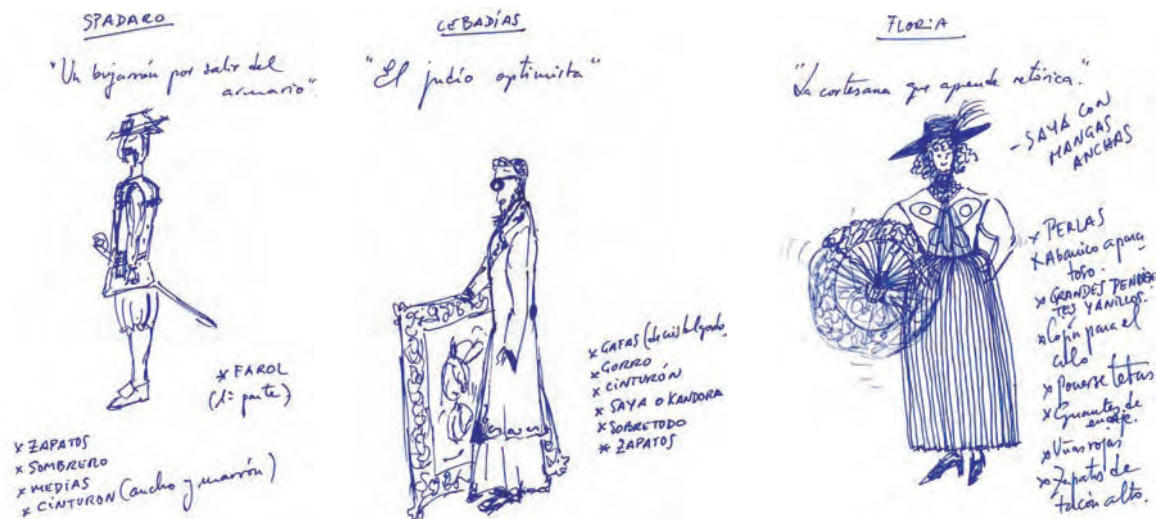 SPADARO
"Un bujarrón por salir del
armario".
* FAROL
(1ª parte)
* ZAPATOS
* SOMBRERO
* MEDIAS
* CINTURON (ancho y marrón)
CEBADÍAS
"El judío optimista"
* GAFAS
* GORRO
* CINTURÓN
* SAYA O KANDORA
* SOBRETODO
* ZAPATOS
FLORIA
"La cortesana que aprende retórica."
- SAYA CON
MANGAS
ANCHAS
* PERLAS
* Abanico apara
toso.
* GRANDES PENDIEN
TES Y ANILLOS.
* Cojín para el
culo
* Ponerse tetas
* Guantes de
encaje.
* Uñas rojas
* Zapatos de
tacón alto.